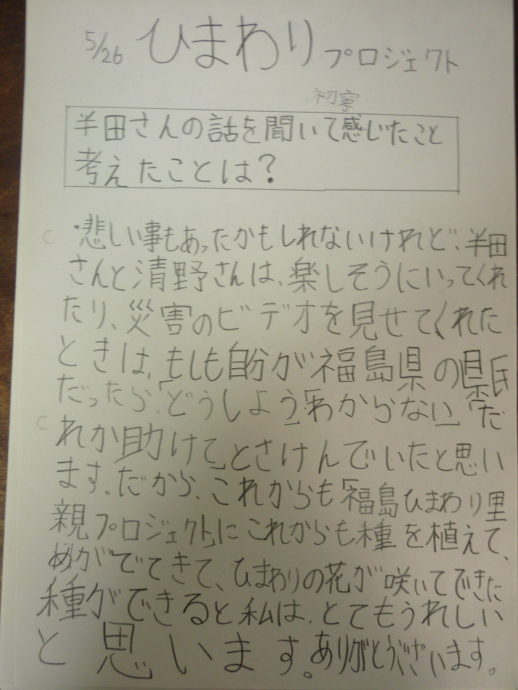 5/26 ひまわりプロジェクト
半田さんの話を聞いて感じたこと
考えたことは？
・悲しい事もあったかもしれないけれど、半田
さんと清野さんは、楽しそうにいってくれ
たり、災害のビデオを見せてくれた
ときは、もしも自分が福島県の県民
だったら、「どうしよう」「わからない」「だ
れか助けて」とさけんでいたと思い
ます。だから、これからも「福島ひまわり里
親プロジェクト」にこれからも種を植えて、
めがでてきて、ひまわりの花が咲いてできた
種ができると私は、とてもうれしい
と思います。ありがとうございます。